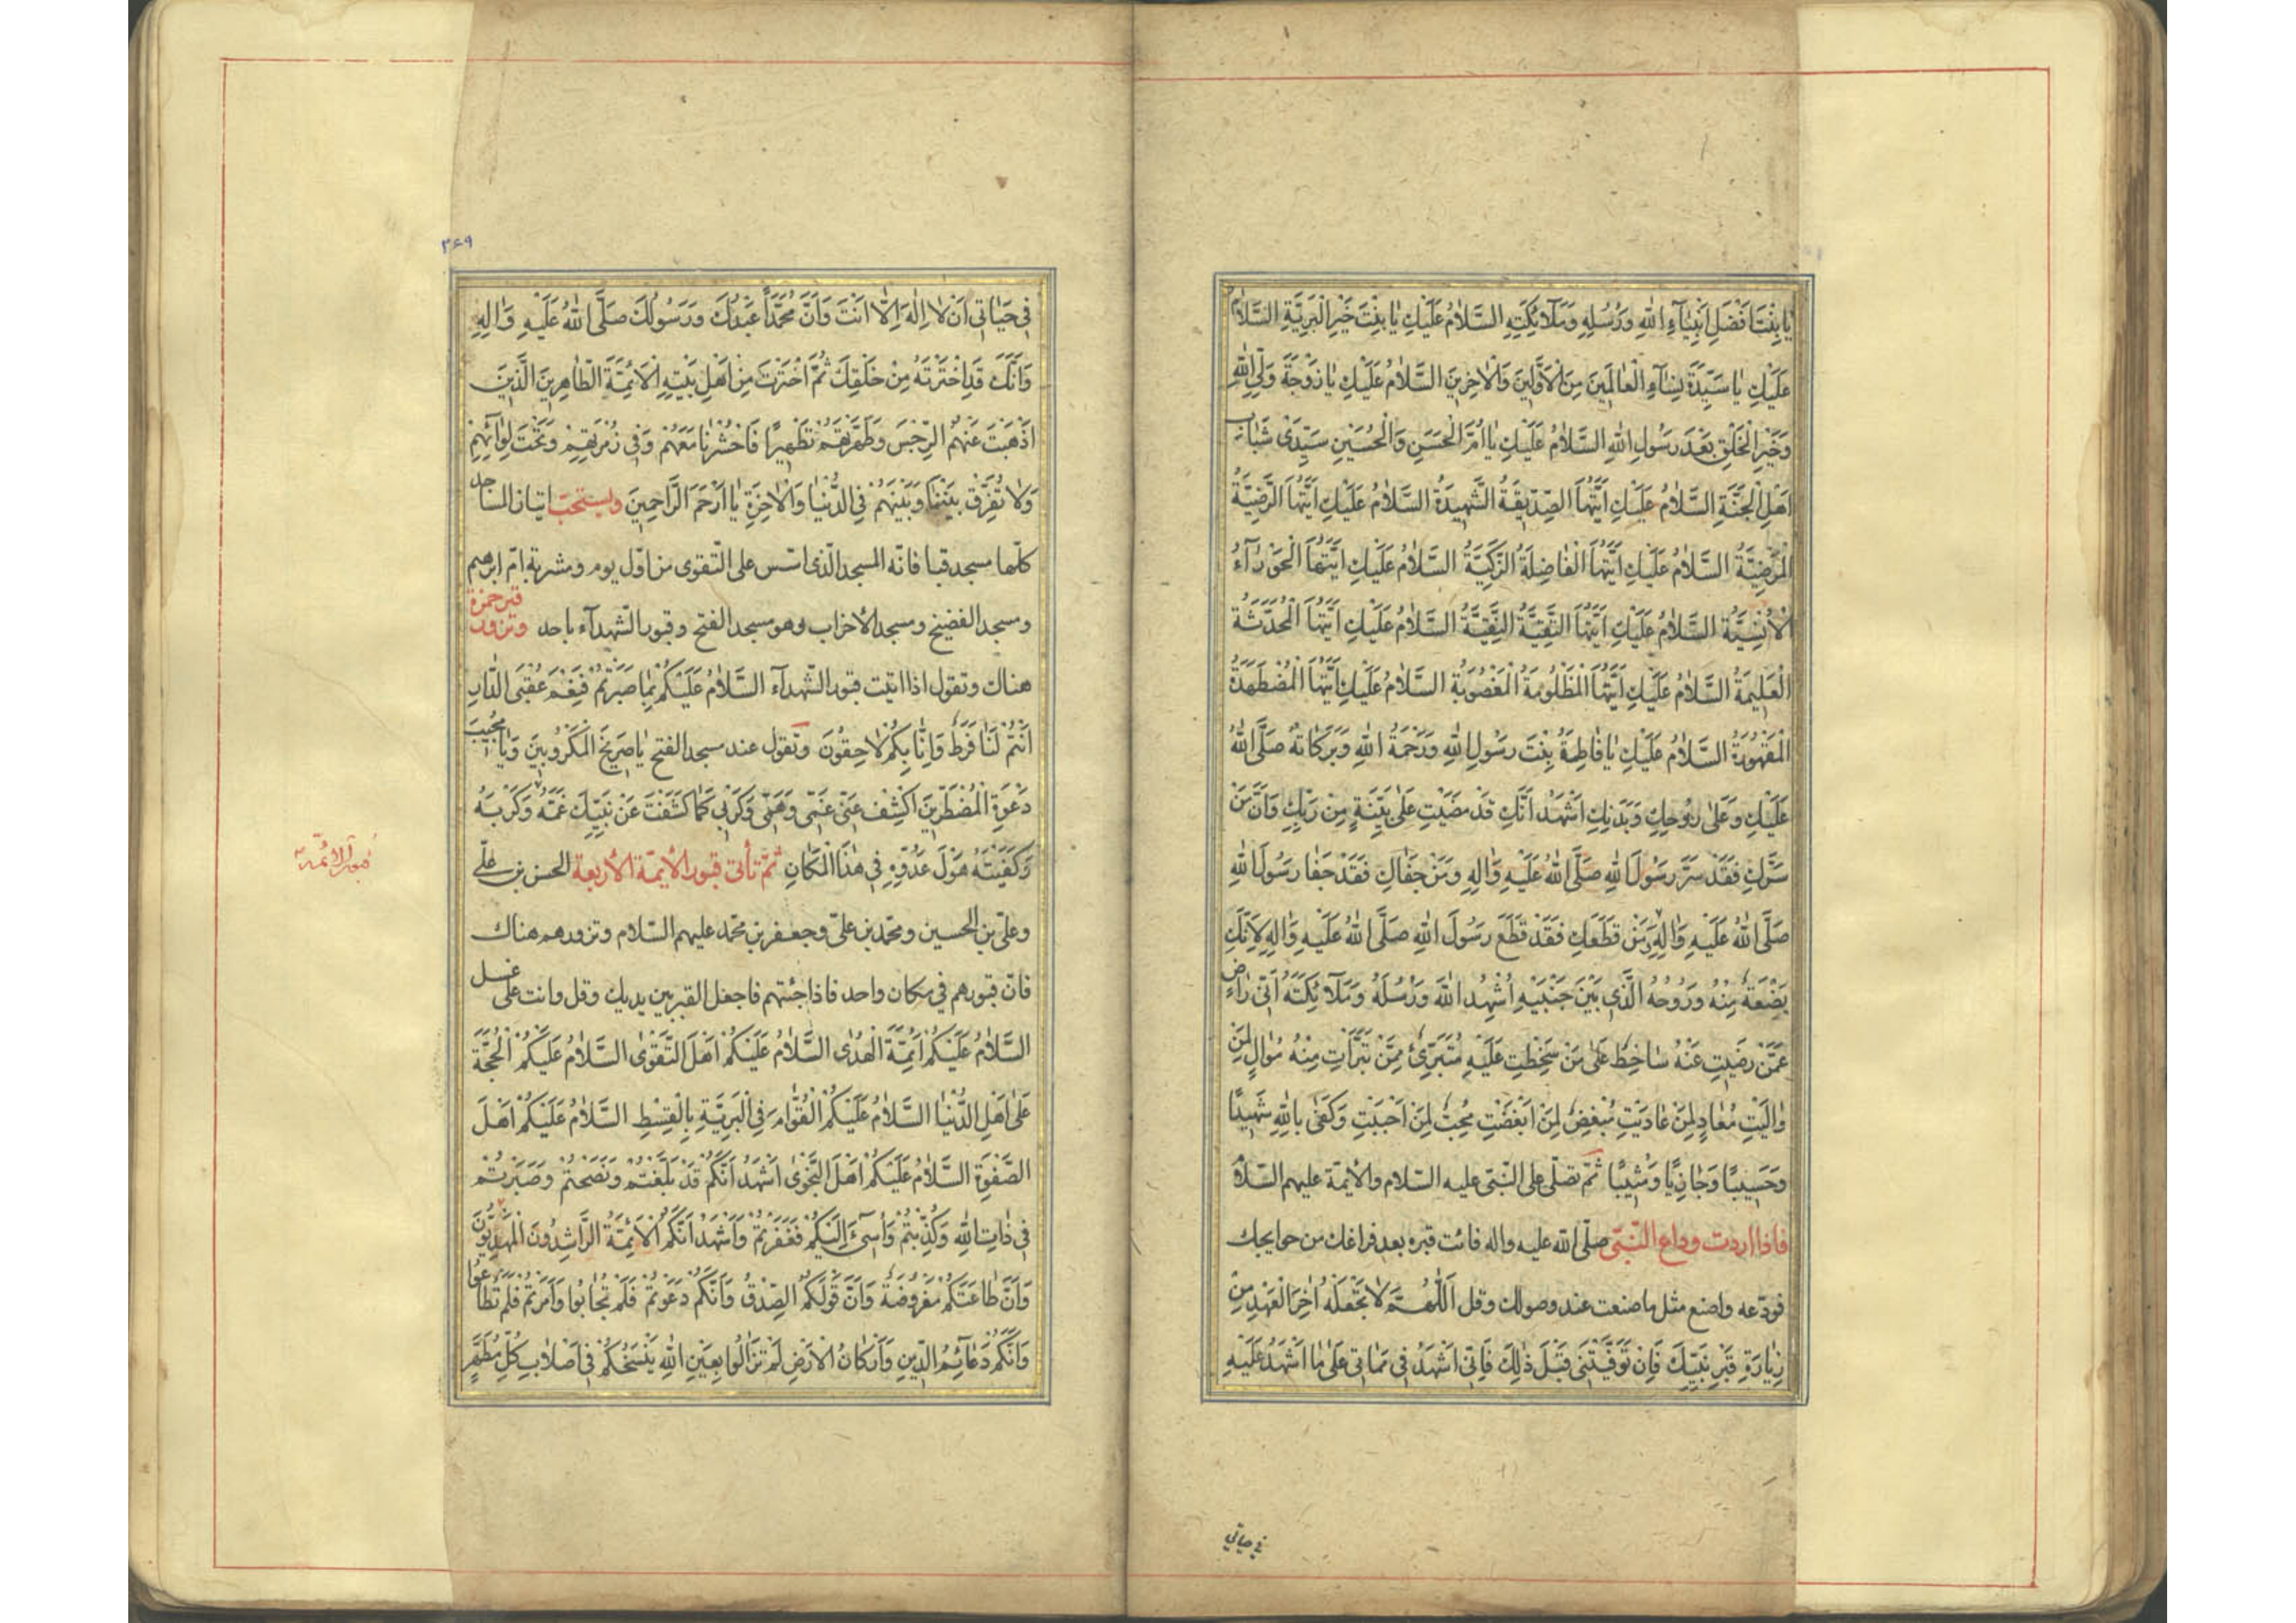 يَا بِنْتَ اَفْضَلِ اَنْبِيَآءِ اللهِ وَرُسُلِهِ وَمَلَآئِكَتِهِ السَّلَامُ عَلَيْكِ يَا بِنْتَ خَيْرِ الْبَرِيَّةِ السَّلَامُ
عَلَيْكِ يَا سَيِّدَةَ نِسَآءِ الْعَالَمِينَ مِنَ الْاَوَّلِينَ وَالْاٰخِرِينَ السَّلَامُ عَلَيْكِ يَا زَوْجَةَ وَلِيِّ اللهِ
وَخَيْرِ الْخَلْقِ بَعْدَ رَسُولِ اللهِ السَّلَامُ عَلَيْكِ يَا اُمَّ الْحَسَنِ وَالْحُسَيْنِ سَيِّدَىْ شَبَابِ
اَهْلِ الْجَنَّةِ السَّلَامُ عَلَيْكِ اَيَّتُهَا الصِّدِّيقَةُ الشَّهِيدَةُ السَّلَامُ عَلَيْكِ اَيَّتُهَا الرَّضِيَّةُ
الْمَرْضِيَّةُ السَّلَامُ عَلَيْكِ اَيَّتُهَا الْفَاضِلَةُ الزَّكِيَّةُ السَّلَامُ عَلَيْكِ اَيَّتُهَا الْحَوْرَآءُ
الْاِنْسِيَّةُ السَّلَامُ عَلَيْكِ اَيَّتُهَا التَّقِيَّةُ النَّقِيَّةُ السَّلَامُ عَلَيْكِ اَيَّتُهَا الْمُحَدَّثَةُ
الْعَلِيمَةُ السَّلَامُ عَلَيْكِ اَيَّتُهَا الْمَظْلُومَةُ الْمَغْصُوبَةُ السَّلَامُ عَلَيْكِ اَيَّتُهَا الْمُضْطَهَدَةُ
الْمَقْهُورَةُ السَّلَامُ عَلَيْكِ يَا فَاطِمَةُ بِنْتَ رَسُولِ اللهِ وَرَحْمَةُ اللهِ وَبَرَكَاتُهُ صَلَّى اللهُ
عَلَيْكِ وَعَلٰى رُوحِكِ وَبَدَنِكِ اَشْهَدُ اَنَّكِ قَدْ مَضَيْتِ عَلٰى بَيِّنَةٍ مِنْ رَبِّكِ وَاَنَّ مَنْ
سَرَّكِ فَقَدْ سَرَّ رَسُولَ اللهِ صَلَّى اللهُ عَلَيْهِ وَاٰلِهِ وَمَنْ جَفَاكِ فَقَدْ جَفَا رَسُولَ اللهِ
صَلَّى اللهُ عَلَيْهِ وَاٰلِهِ وَمَنْ قَطَعَكِ فَقَدْ قَطَعَ رَسُولَ اللهِ صَلَّى اللهُ عَلَيْهِ وَاٰلِهِ لِاَنَّكِ
بَضْعَةٌ مِنْهُ وَرُوحُهُ الَّذِي بَيْنَ جَنْبَيْهِ اُشْهِدُ اللهَ وَرُسُلَهُ وَمَلَآئِكَتَهُ اَنِّي رَاضٍ
عَمَّنْ رَضِيتِ عَنْهُ سَاخِطٌ عَلٰى مَنْ سَخِطْتِ عَلَيْهِ مُتَبَرِّئٌ مِمَّنْ تَبَرَّأْتِ مِنْهُ مُوَالٍ لِمَنْ
وَالَيْتِ مُعَادٍ لِمَنْ عَادَيْتِ مُبْغِضٌ لِمَنْ اَبْغَضْتِ مُحِبٌّ لِمَنْ اَحْبَبْتِ وَكَفٰى بِاللهِ شَهِيدًا
وَحَسِيبًا وَجَازِيًا وَمُثِيبًا ثمّ تصلّى على النّبىّ عليه السّلام والائمّة عليهم السّلام
فاذا اردت وداع النّبىّ صلّى الله عليه واله فائت قبره بعد فراغك من حوايجك
فودّعه واصنع مثل ما صنعت عند وصولك وقل اَللّٰهُمَّ لَا تَجْعَلْهُ اٰخِرَ الْعَهْدِ مِنْ
زِيَارَةِ قَبْرِ نَبِيِّكَ فَاِنْ تَوَفَّيْتَنِي قَبْلَ ذٰلِكَ فَاِنِّي اَشْهَدُ فِي مَمَاتِي عَلٰى مَا اَشْهَدُ عَلَيْهِ
في حياتي
٣٦٩
فِي حَيَاتِي اَنْ لَا اِلٰهَ اِلَّا اَنْتَ وَاَنَّ مُحَمَّدًا عَبْدُكَ وَرَسُولُكَ صَلَّى اللهُ عَلَيْهِ وَاٰلِهِ
وَاَنَّكَ قَدِ اخْتَرْتَهُ مِنْ خَلْقِكَ ثُمَّ اخْتَرْتَ مِنْ اَهْلِ بَيْتِهِ الْاَئِمَّةَ الطَّاهِرِينَ الَّذِينَ
اَذْهَبْتَ عَنْهُمُ الرِّجْسَ وَطَهَّرْتَهُمْ تَطْهِيرًا فَاحْشُرْنَا مَعَهُمْ وَفِي زُمْرَتِهِمْ وَتَحْتَ لِوَائِهِمْ
وَلَا تُفَرِّقْ بَيْنَنَا وَبَيْنَهُمْ فِي الدُّنْيَا وَالْاٰخِرَةِ يَا اَرْحَمَ الرَّاحِمِينَ ويستحبّ اتيان المساجد
كلّها مسجد قبا فانّه المسجد الّذى اسّس على التّقوى من اوّل يوم ومشربة امّ ابرهيم
ومسجد الفضيخ ومسجد الاحزاب وهو مسجد الفتح وقبور الشّهدآء باحد وتزور قبر حمزة
هناك وتقول اذا اتيت قبور الشّهدآء السَّلَامُ عَلَيْكُمْ بِمَا صَبَرْتُمْ فَنِعْمَ عُقْبَى الدَّارِ
اَنْتُمْ لَنَا فَرَطٌ وَاِنَّا بِكُمْ لَاحِقُونَ وتقول عند مسجد الفتح يَا صَرِيخَ الْمَكْرُوبِينَ وَيَا مُجِيبَ
دَعْوَةِ الْمُضْطَرِّينَ اكْشِفْ عَنِّي غَمِّي وَهَمِّي وَكَرْبِي كَمَا كَشَفْتَ عَنْ نَبِيِّكَ غَمَّهُ وَكَرْبَهُ
وَكَفَيْتَهُ هَوْلَ عَدُوِّهِ فِي هٰذَا الْمَكَانِ ثمّ تأتى قبور الأئمّة الأربعة الحسن بن علىّ
وعلىّ بن الحسين ومحمّد بن علىّ وجعفر بن محمّد عليهم السّلام وتزورهم هناك
فانّ قبورهم في مكان واحد فاذا جئتهم فاجعل القبر بين يديك وقل وانت على غسل
السَّلَامُ عَلَيْكُمْ اَئِمَّةَ الْهُدٰى السَّلَامُ عَلَيْكُمْ اَهْلَ التَّقْوٰى السَّلَامُ عَلَيْكُمُ الْحُجَّةَ
عَلٰى اَهْلِ الدُّنْيَا السَّلَامُ عَلَيْكُمُ الْقُوَّامَ فِي الْبَرِيَّةِ بِالْقِسْطِ السَّلَامُ عَلَيْكُمْ اَهْلَ
الصَّفْوَةِ السَّلَامُ عَلَيْكُمْ اَهْلَ النَّجْوٰى اَشْهَدُ اَنَّكُمْ قَدْ بَلَّغْتُمْ وَنَصَحْتُمْ وَصَبَرْتُمْ
فِي ذَاتِ اللهِ وَكُذِّبْتُمْ وَاُسِيءَ اِلَيْكُمْ فَغَفَرْتُمْ وَاَشْهَدُ اَنَّكُمُ الْاَئِمَّةُ الرَّاشِدُونَ الْمَهْدِيُّونَ
وَاَنَّ طَاعَتَكُمْ مَفْرُوضَةٌ وَاَنَّ قَوْلَكُمُ الصِّدْقُ وَاَنَّكُمْ دَعَوْتُمْ فَلَمْ تُجَابُوا وَاَمَرْتُمْ فَلَمْ تُطَاعُوا
وَاَنَّكُمْ دَعَائِمُ الدِّينِ وَاَرْكَانُ الْاَرْضِ لَمْ تَزَالُوا بِعَيْنِ اللهِ يَنْسَخُكُمْ فِي اَصْلَابِ كُلِّ مُطَهَّرٍ